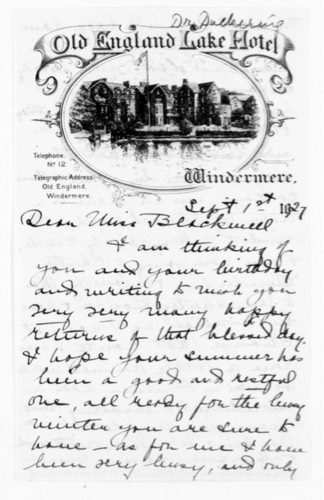 Dr. Duckering
Old England Lake Hotel
Telephone
No 12
Telegraphic Address
Old England.
Windermere.
Windermere.
Sept 1st 1927
Dear Miss Blackwell
I am thinking of
you and your birthday
and writing to wish you
very very many happy
returns of that blessed day.
I hope your summer has
been a good and restful
one, all ready for the busy
winter you are sure to
have - as for me I have
been very busy, and only